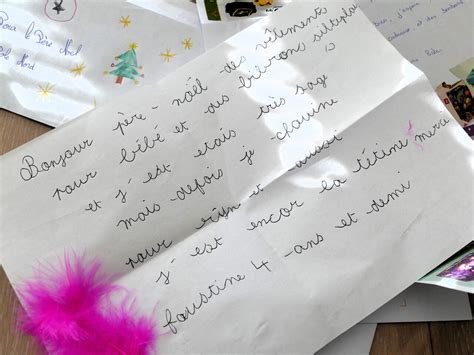 Pour le Père Noël
Nord
Bonjour père-noël des vêtements
pour bébé et des biivons
et j'est etais très sage
mais depuis je chouine
pour rien et aussi
j'est encor la tétine merci
faustine 4 ans et demi